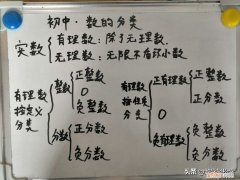 初中·数的分类
实数
有理数：除了无理数.
无理数：无限不循环小数
有理数按定义分类
整数
正整数
0
负整数
分数
正分数
负分数
有理数按性质分类
正有理数
正整数
正分数
0
负有理数
负整数
负分数